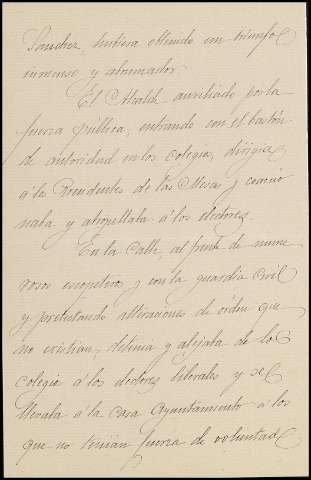 Sánchez, hubiera obtenido un triunfo
inmenso y abrumador.
El Alcalde auxiliado por la
fuerza pública, entrando con el bastón
de autoridad en los colegios, dirigíase
á los Presidentes de las Mesas y coaccio
naba y atropellaba á los electores.
En la calle, al frente de nume
rosos escopeteros y con la guardia civil
y pretestando alteraciones de órden que
no existian, detenia y alejaba de los
colegios á los electores liberales y se
llevaba á la Casa Ayuntamiento á los
que no tenían fuerza de voluntad